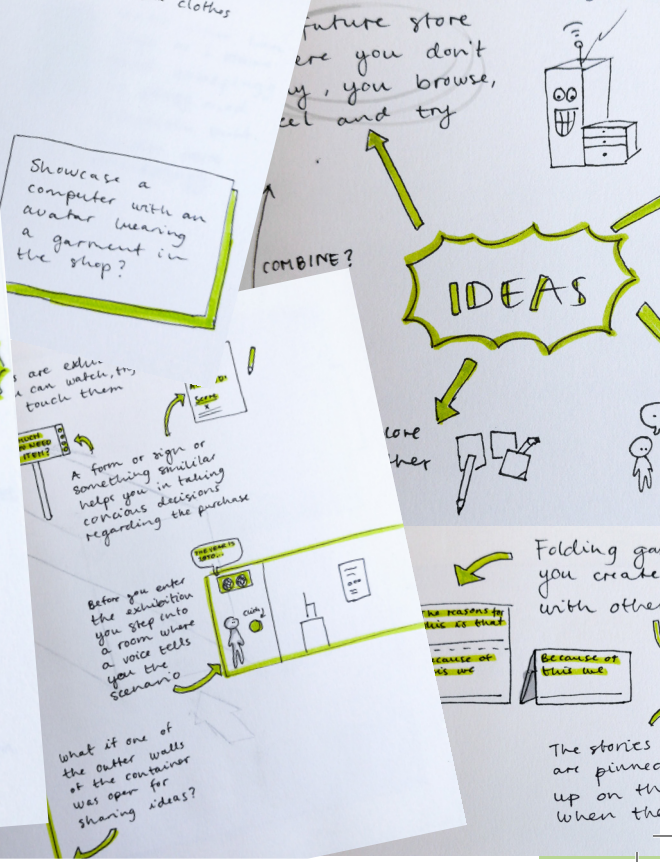 clothes
Showcase a
computer with an
avatar wearing
a garment in
the shop?
future store
you don't
you browse,
and try
COMBINE?
IDEAS
are
can watch, try,
touch them
NEED
ITEM?
Score
X
A form or sign or
something smililar
helps you in taking
concious decisions
regarding the purchase
THE YEAR IS
Before you enter
the exhibition
you step into
a room where
a voice tells
you the
scenario
What if one of
the outter walls
of the container
was open for
sharing ideas?
Folding
you create
with
The reasons for
this is that
of
we
Because of
this we
The stories
are pinned
up on
when